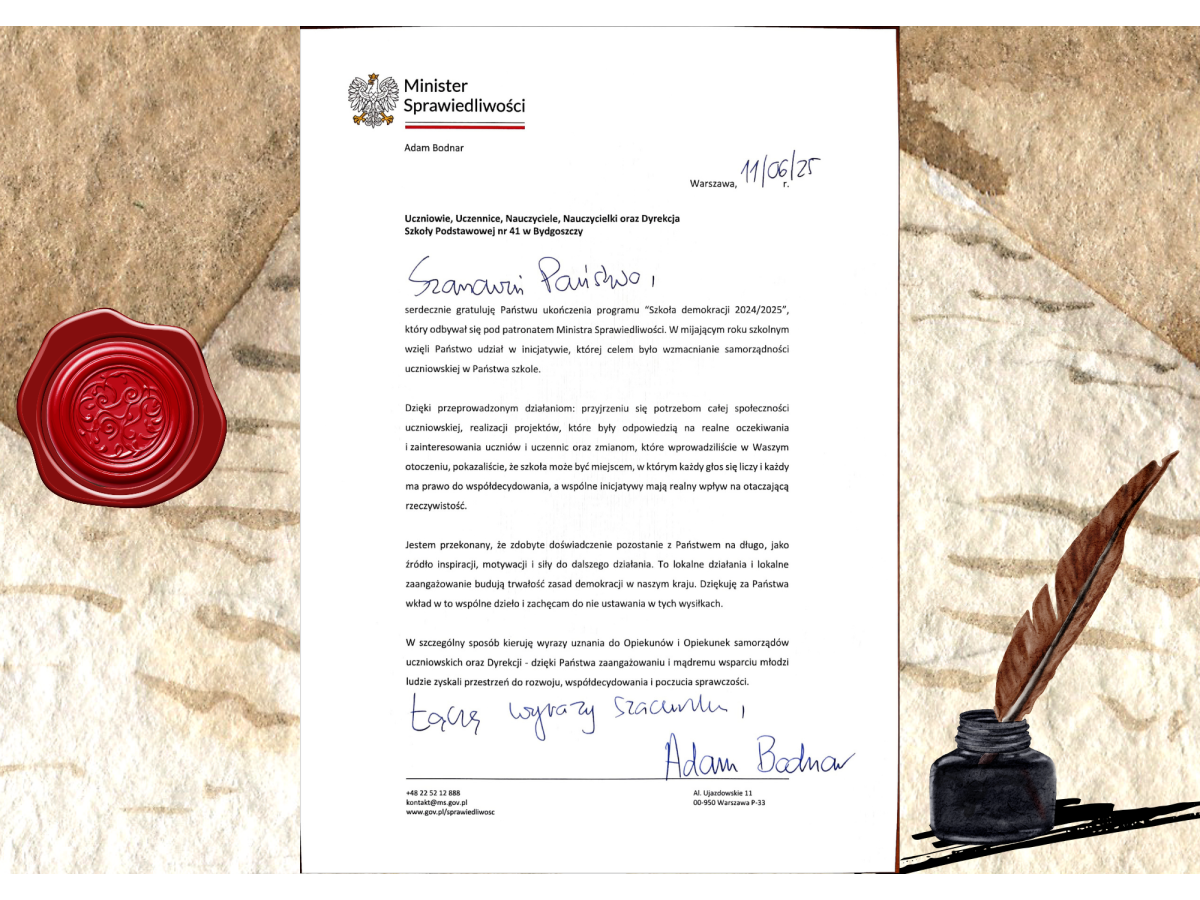 Minister
Sprawiedliwości
Adam Bodnar
Warszawa, 11/06/25 r.
Uczniowie, Uczennice, Nauczyciele, Nauczycielki oraz Dyrekcja
Szkoły Podstawowej nr 41 w Bydgoszczy
Szanowni Państwo,
serdecznie gratuluję Państwu ukończenia programu “Szkoła demokracji 2024/2025”,
który odbywał się pod patronatem Ministra Sprawiedliwości. W mijającym roku szkolnym
wzięli Państwo udział w inicjatywie, której celem było wzmacnianie samorządności
uczniowskiej w Państwa szkole.
Dzięki przeprowadzonym działaniom: przyjrzeniu się potrzebom całej społeczności
uczniowskiej, realizacji projektów, które były odpowiedzią na realne oczekiwania
i zainteresowania uczniów i uczennic oraz zmianom, które wprowadziliście w Waszym
otoczeniu, pokazaliście, że szkoła może być miejscem, w którym każdy głos się liczy i każdy
ma prawo do współdecydowania, a wspólne inicjatywy mają realny wpływ na otaczającą
rzeczywistość.
Jestem przekonany, że zdobyte doświadczenie pozostanie z Państwem na długo, jako
źródło inspiracji, motywacji i siły do dalszego działania. To lokalne działania i lokalne
zaangażowanie budują trwałość zasad demokracji w naszym kraju. Dziękuję za Państwa
wkład w to wspólne dzieło i zachęcam do nie ustawania w tych wysiłkach.
W szczególny sposób kieruję wyrazy uznania do Opiekunów i Opiekunek samorządów
uczniowskich oraz Dyrekcji - dzięki Państwa zaangażowaniu i mądremu wsparciu młodzi
ludzie zyskali przestrzeń do rozwoju, współdecydowania i poczucia sprawczości.
Łączę wyrazy szacunku,
Adam Bodnar
+48 22 52 12 888
kontakt@ms.gov.pl
www.gov.pl/sprawiedliwosc
Al. Ujazdowskie 11
00-950 Warszawa P-33